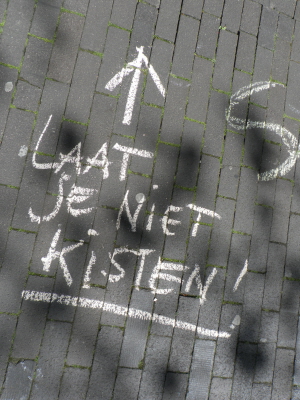 S
LAAT
JE NIET
KISTEN!